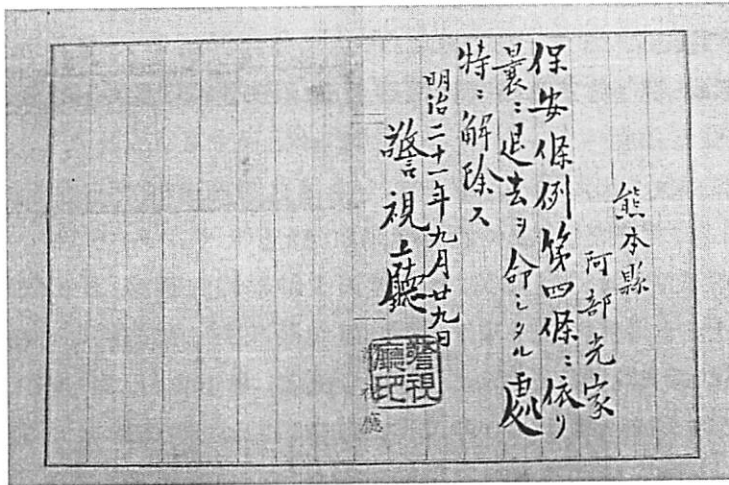 熊本縣
阿部充家
保安條例第四條ニ依リ
曩ニ退去ヲ命シタル處
特ニ解除ス
明治二十一年九月廿九日
警視廳
警視
廳印